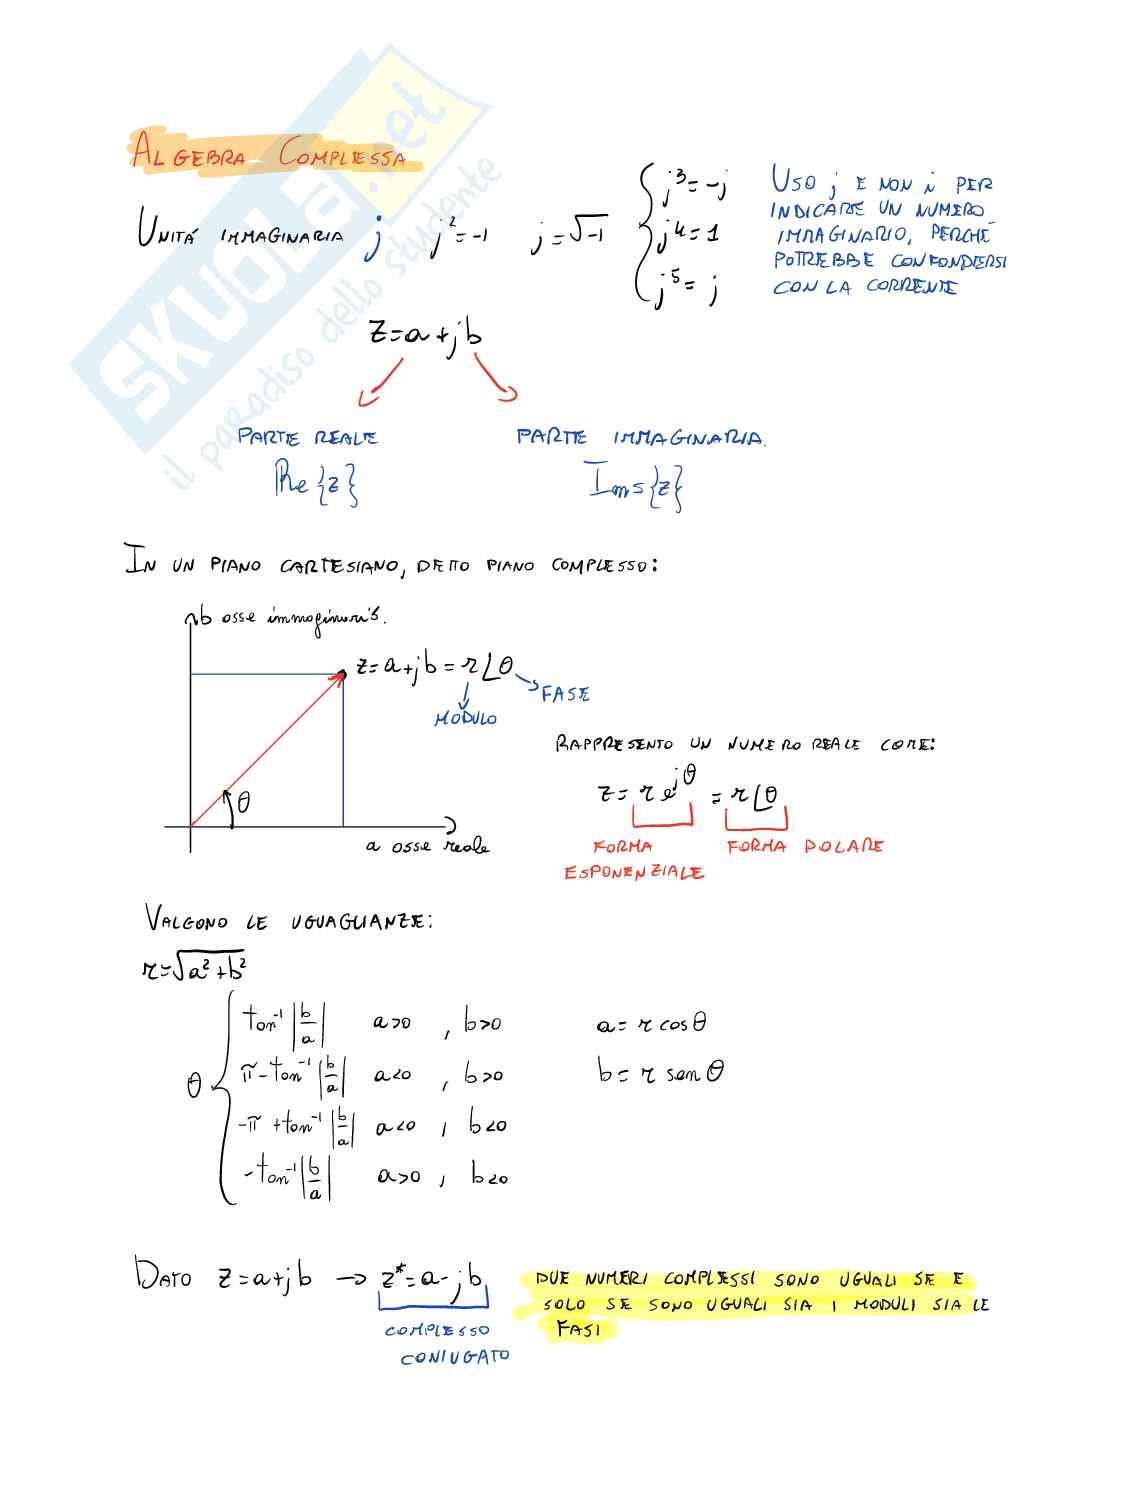 ALGEBRA COMPLESSA
UNITÁ IMMAGINARIA j j²=-1 j=√-1
j³=-j
j⁴=1
j⁵=j
USO j E NON i PER
INDICARE UN NUMERO
IMMAGINARIO, PERCHÉ
POTREBBE CONFONDERSI
CON LA CORRENTE
z=a+jb
PARTE REALE PARTE IMMAGINARIA.
Re{z} Ims{z}
IN UN PIANO CARTESIANO, DETTO PIANO COMPLESSO:
b asse immaginario.
z=a+jb=r∠θ
FASE
MODULO
θ
a asse reale
RAPPRESENTO UN NUMERO REALE COME:
z=re^jθ = r∠θ
FORMA ESPONENZIALE
FORMA POLARE
VALGONO LE UGUAGLIANZE:
r=√a²+b²
θ
tan⁻¹|b/a| a>0 , b>0 a=r cosθ
π-tan⁻¹|b/a| a<0 , b>0 b=r senθ
-π+tan⁻¹|b/a| a<0 , b<0
-tan⁻¹|b/a| a>0 , b<0
DATO z=a+jb → z*=a-jb
COMPLESSO
CONIUGATO
DUE NUMERI COMPLESSI SONO UGUALI SE E
SOLO SE SONO UGUALI SIA I MODULI SIA LE
FASI
SKUOLA.net
il paradiso dello studente